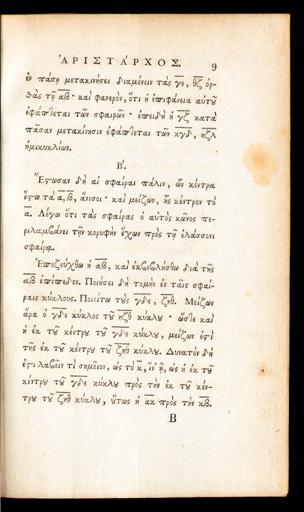 ἈΡΙΣΤΑΡΧΟΣ. 9
ἐν πάσῃ μετακινήσει διαμένειν τὰς γε, θζ ὀρ-
θὰς τῇ αβ· καὶ φανερὸν, ὅτι ἡ ἐπιφάνεια αὐτοῦ
ἐφάπτεται τῶν σφαιρῶν· ἐπειδὴ ἡ γζ κατὰ
πᾶσαν μετακίνησιν ἐφάπτεται τῶν κγδ, ηζλ
ἡμικυκλίων.
Β'.
Ἔστωσαν δὴ αἱ σφαῖραι πάλιν, ὧν κέντρα
ἔστω τὰ α, β, ἄνισοι· καὶ μείζων, ἧς κέντρον τὸ
α. Λέγω ὅτι τὰς σφαίρας ὁ αὐτὸς κῶνος πε-
ριλαμβάνει τὴν κορυφὴν ἔχων πρὸς τῇ ἐλάσσονι
σφαίρᾳ.
Ἐπεζεύχθω ἡ αβ, καὶ ἐκβεβλήσθω διὰ τῆς
αβ ἐπίπεδον. Ποιήσει δὴ τομὴν ἐν ταῖς σφαί-
ραις κύκλους. Ποιείτω τοὺς γδε, ζηθ. Μείζων
ἄρα ὁ γδε κύκλος τοῦ ηζθ κύκλου· ὥστε καὶ
ἡ ἐκ τοῦ κέντρου τοῦ γδε κύκλου, μείζων ἐστὶ
τῆς ἐκ τοῦ κέντρου τοῦ ζηθ κύκλου. Δυνατὸν δή
ἐστι λαβεῖν τι σημεῖον, ὡς τὸ κ, ἵν' ᾖ, ὡς ἡ ἐκ τοῦ
κέντρου τοῦ γδε κύκλου πρὸς τὴν ἐκ τοῦ κέν-
τρου τοῦ ζηθ κύκλου, οὕτως ἡ ακ πρὸς τὴν κβ.
Β